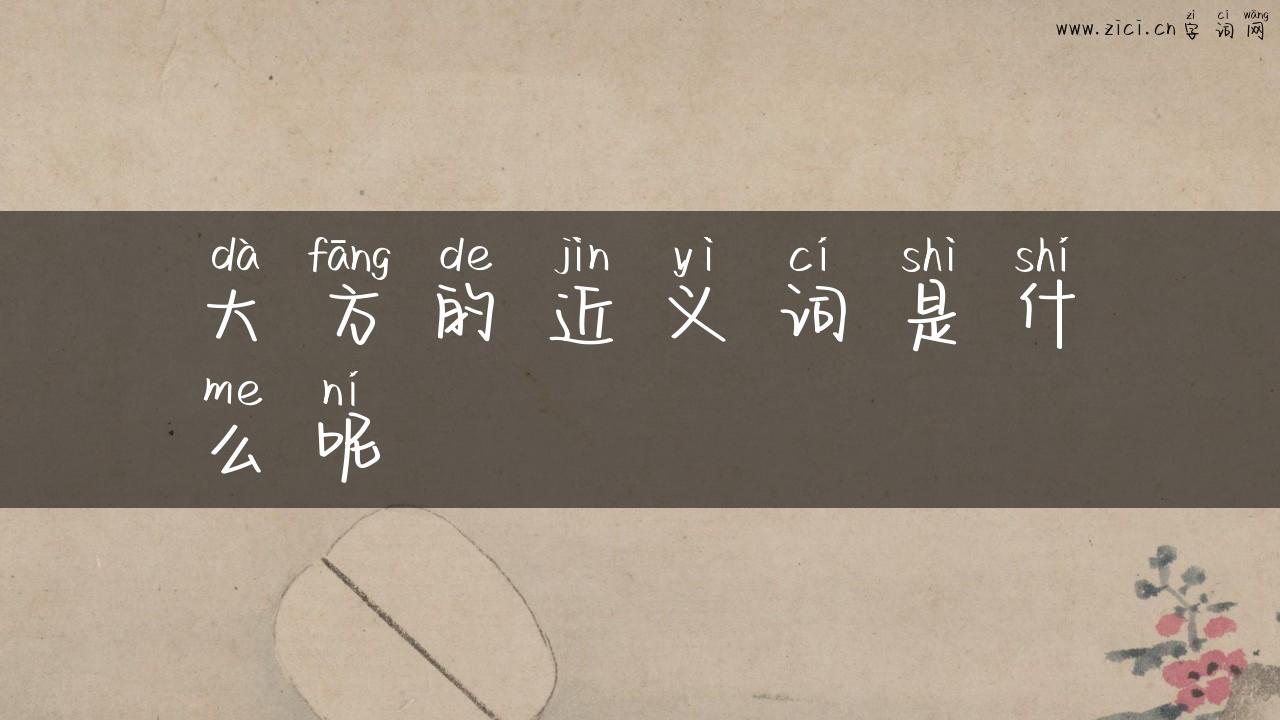 zì cí wǎng
www.zici.cn 字 词 网
dà fāng de jìn yì cí shì shí
大 方 的 近 义 词 是 什
me ní
么 呢